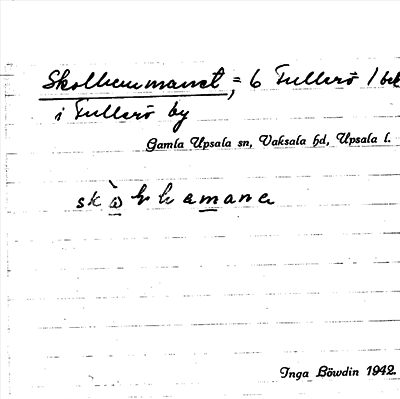 Skolhemmanet, = 6 Fullerö 1 bek
i Fullerö by
Gamla Upsala sn, Vaksala hd, Upsala l.
Inga Böwdin 1942.